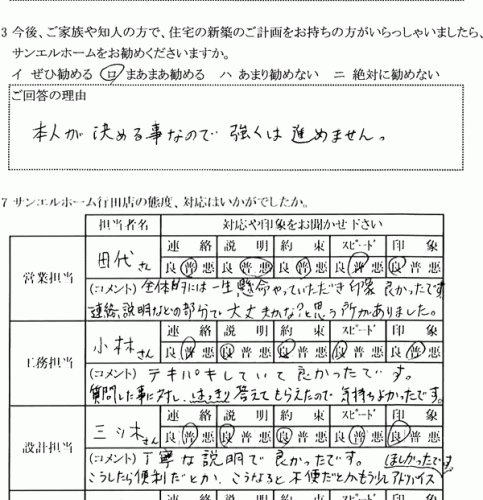 3 今後、ご家族や知人の方で、住宅の新築のご計画をお持ちの方がいらっしゃいましたら、
サンエルホームをお勧めくださいますか。
イ ぜひ勧める ロ まあまあ勧める ハ あまり勧めない ニ 絶対に勧めない
ご回答の理由
本人が決める事なので強くは進めません。
7 サンエルホーム行田店の態度、対応はいかがでしたか。
担当者名 対応や印象をお聞かせ下さい
営業担当 田代さん
連絡 説明 約束 スピード 印象
良 普 悪 良 普 悪 良 普 悪 良 普 悪 良 普 悪
(コメント) 全体的には一生懸命やっていただき印象良かったです
連絡、説明などの部分で大丈夫かな?と思う所がありました。
工務担当 小林さん
連絡 説明 約束 スピード 印象
良 普 悪 良 普 悪 良 普 悪 良 普 悪 良 普 悪
(コメント) テキパキしていて良かったです。
質問した事に対し、はっきり答えてもらえたので気持ちよかったです。
設計担当 三ツ木さん
連絡 説明 約束 スピード 印象
良 普 悪 良 普 悪 良 普 悪 良 普 悪 良 普 悪
(コメント) 丁寧な説明で良かったです。
こうしたら便利だとか、こうなると不便だとかもう少しアドバイス
ほしかったです
連絡 説明 約束 スピード 印象